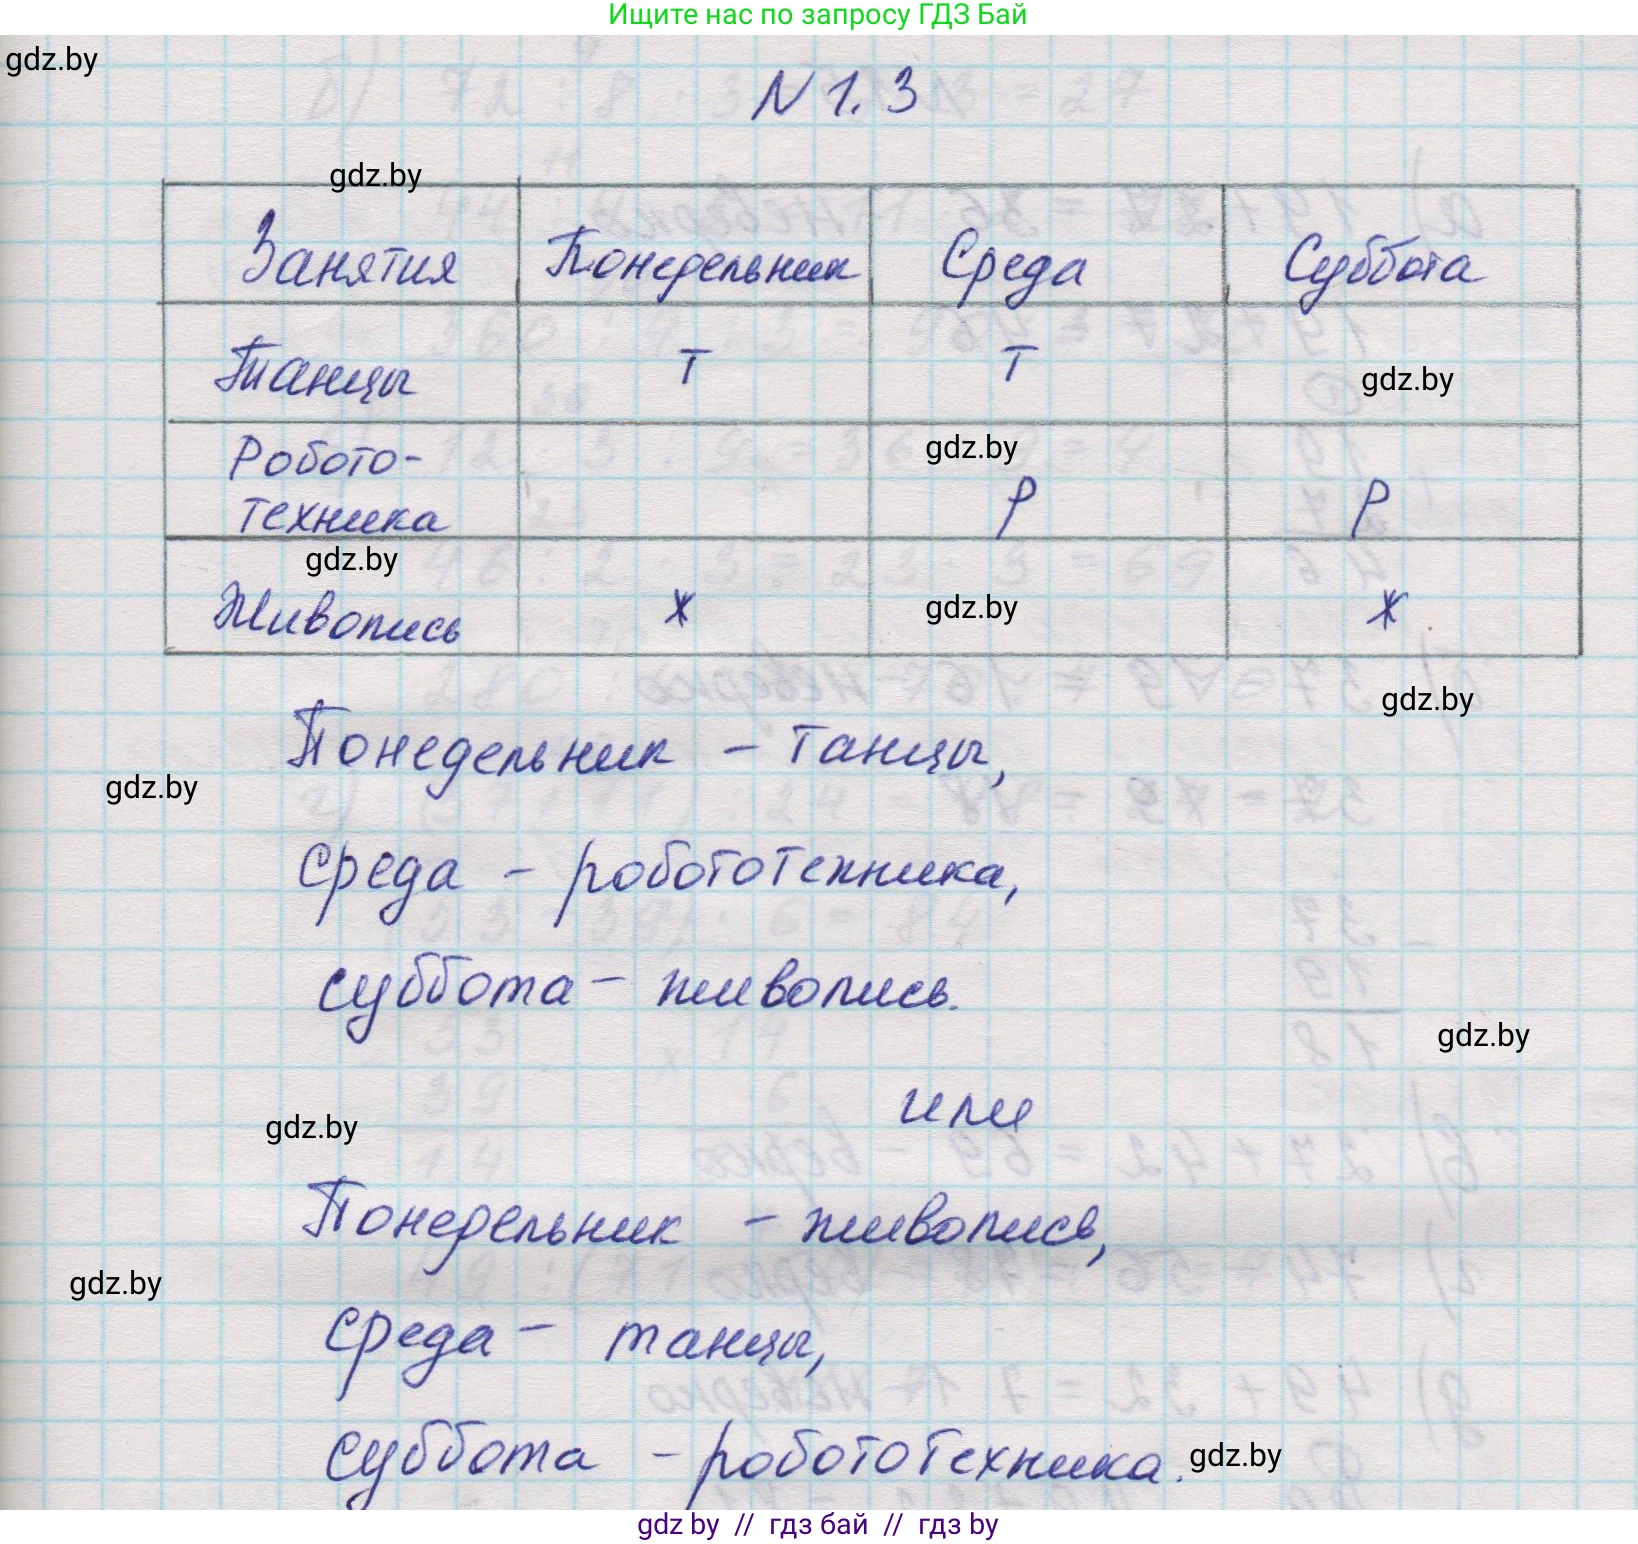 Ищите нас по запросу ГДЗ Бай
gdz.by
N 1.3
gdz.by
Занятия Понедельник Среда Суббота
Танцы Т Т
gdz.by
Робото-
gdz.by
техника Р Р
gdz.by
Живопись Ж Ж
gdz.by
gdz.by
Понедельник - танцы,
gdz.by
среда - робототехника,
суббота - живопись.
gdz.by
или
gdz.by
Понедельник - живопись,
gdz.by
среда - танцы,
суббота - робототехника.
gdz.by
gdz by // гдз бай // гдз by